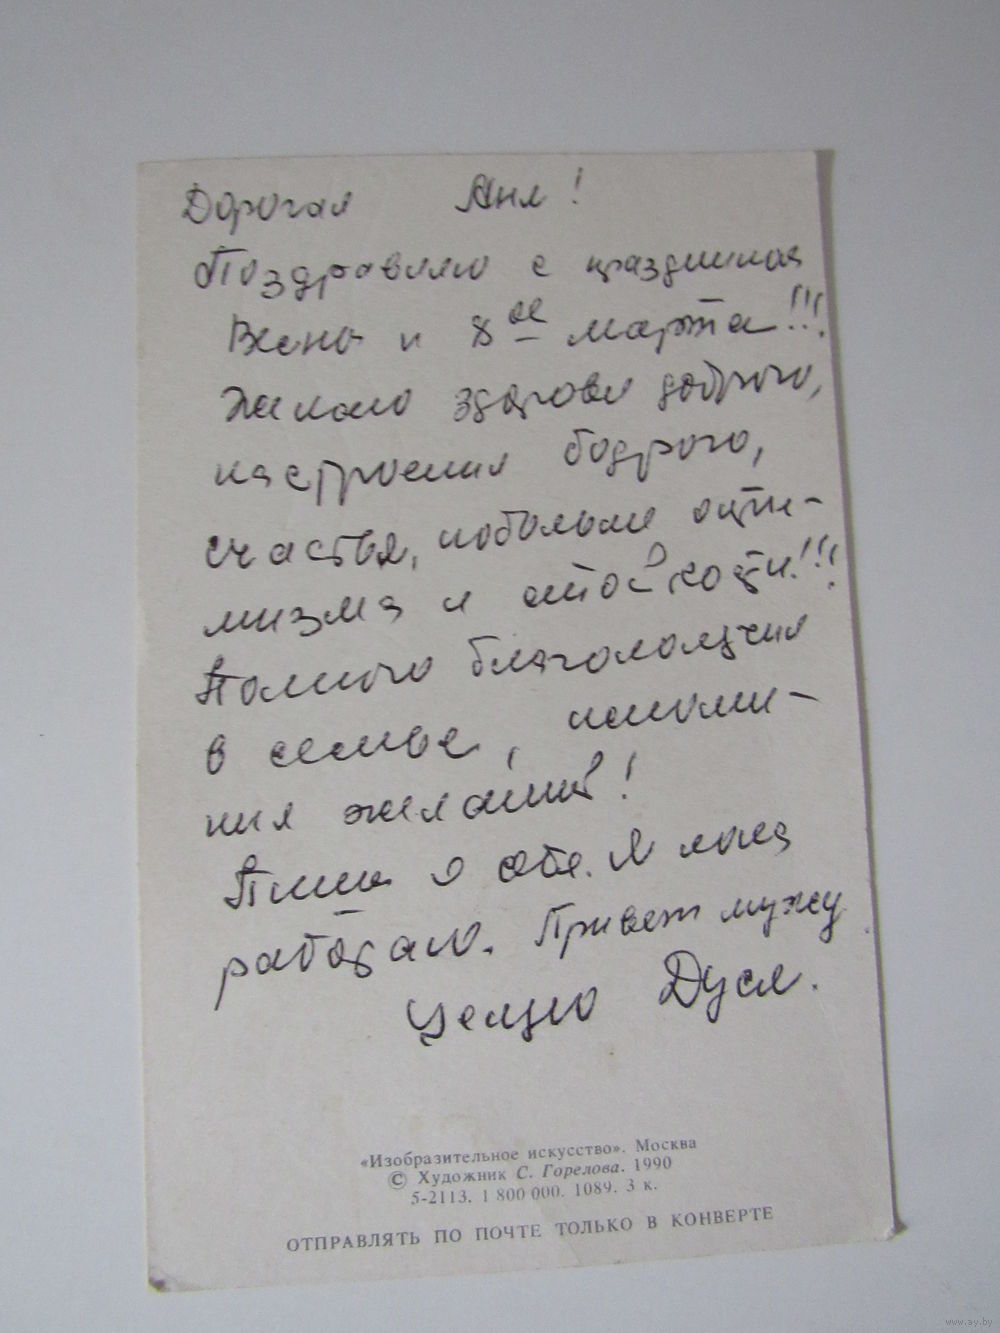 Дорогая Аня!
Поздравляю с праздником
Весны и 8ое марта!!!
Желаю здоровья доброго,
настроения бодрого,
счастья, побольше опти-
мизма и стойкости!!!
Полного благополучия
в семье, исполне-
ния желаний!
Пиши о себе. Я пока
работаю. Привет мужу.
Целую Дуся.
«Изобразительное искусство». Москва
© Художник С. Горелова. 1990
5-2113. 1 800 000. 1089. 3 к.
ОТПРАВЛЯТЬ ПО ПОЧТЕ ТОЛЬКО В КОНВЕРТЕ
www.ay.by